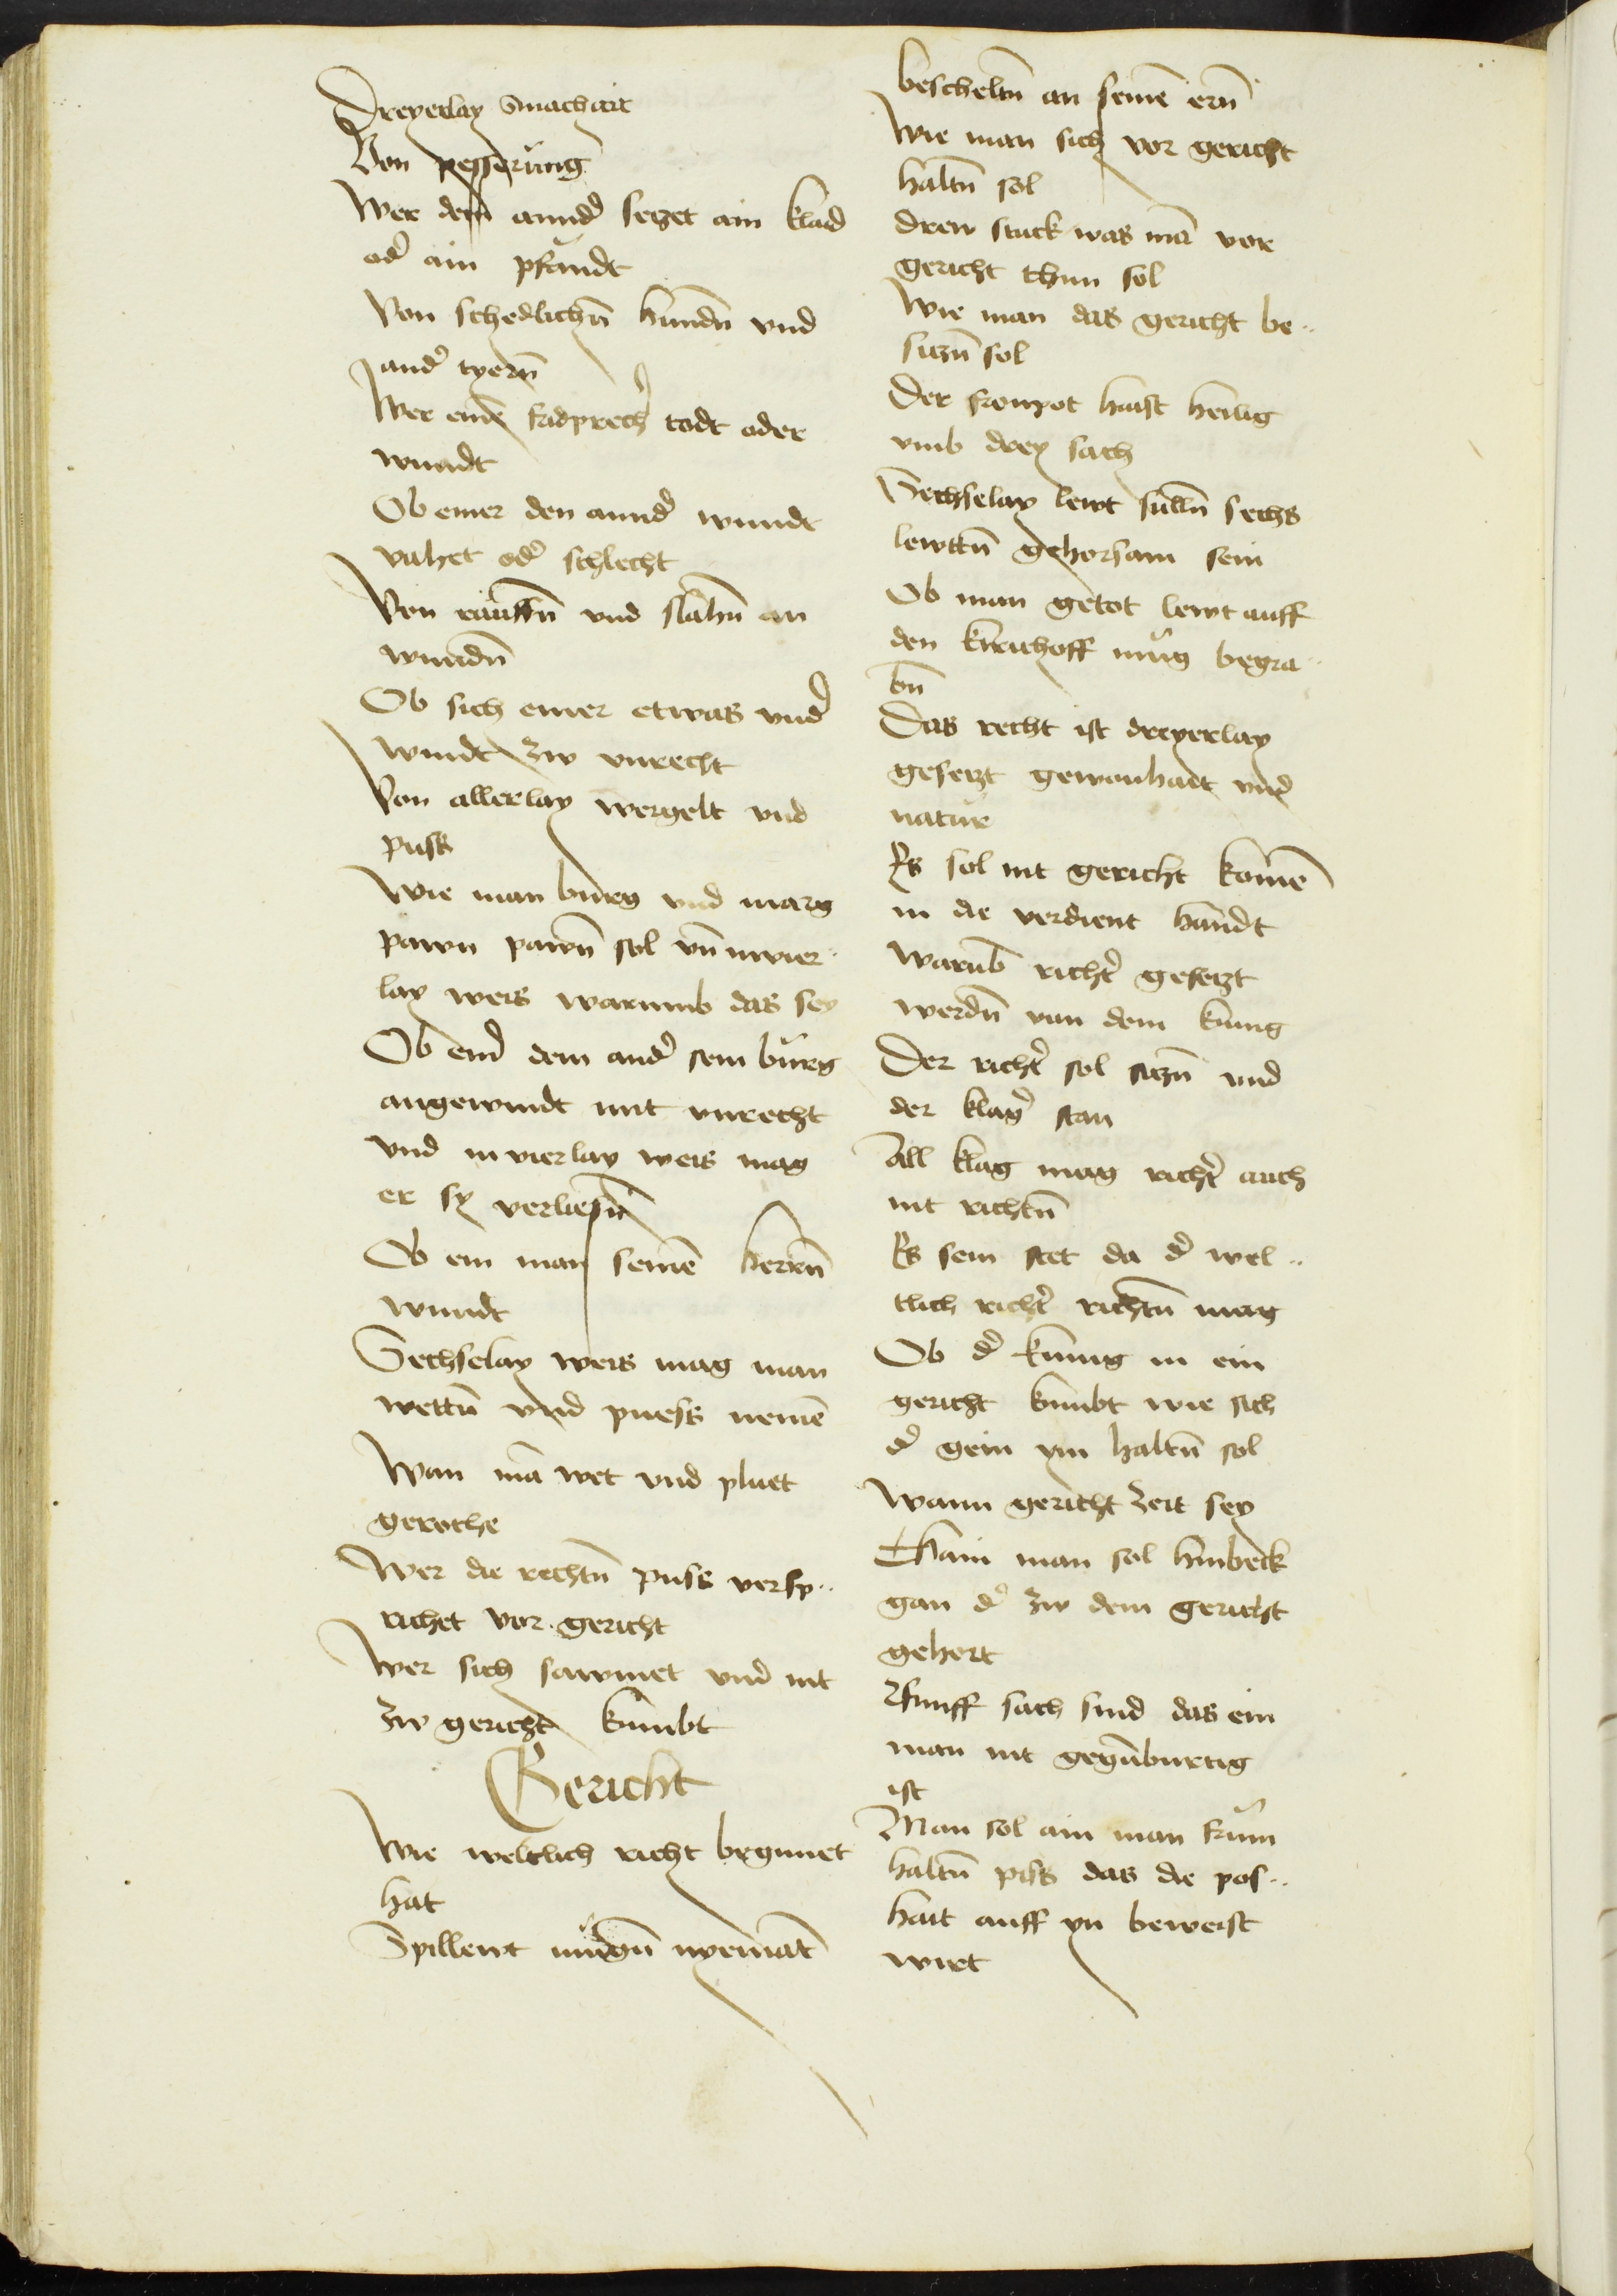 Dreyerlay Smachait
Von pesserung
Wer dem annd̉ setzet ain klaid
od̉ ain pfandt
Von schedlichn̄ hundn̄ vnd
and̉ tyern̄
Wer einē fridprech̉ todt oder
wundt
Ob einer den annd̉ wundt
vahet od̉ schlecht
Von rauffn̄ vnd slahn̄ an
wundn̄
Ob sich einer etwas vnd̉
windt zw vnrecht
Von allerlay wergelt vnd
puss
Wie man burg vnd marg
pawn pawn̄ sol vn̄ in vier
lay weis warumb das sey
Ob ein̉ dem and̉ sein burg
angewindt mit vnrecht
vnd in vierlay weis mag
er sy verliesn̄
Ob ein man seinē herrn̄
wundt
Sechselay weis mag man
wettn̄ vnd puess nemē
Wan mā wet vnd pluet
geroche
Wer die rechtn̄ puss versp¨
richet vor gericht
Wer sich sawmet vnd nit
zw gericht kumbt
Gericht
Wie weltlich richt begunet
hat
Spillewt mugn̄ nyemāt
bescheltn̄ an seinē ern̄
Wie man sich vor gericht
haltn̄ sol
Drew stuck was mā vor
gericht thun sol
Wie man das gericht be¨
sitzn̄ sol
Der fronpot haist heilig
vmb drey sach
Sechselay lewt sulln̄ sechs
lewttn̄ gehorsam sein
Ob man getot lewt auff
den kirichoff mug begra¨
bn̄
Das recht ist dreyerlay
gesetzt gewonhait vnd
natur
Es sol nit gericht komē
in die verdient handt
Warūb richt̉ gesetzt
werdn̄ von dem kunig
Der richt̉ sol sitzn̄ vnd
der klag̉ stan
All klag mag richt̉ auch
nit richtn̄
Es sein stet da d̉ wel¨
tlich richt̉ richtn̄ mag
Ob d̉ kunig in ein
gericht kumbt wie sich
d̉ gein ym haltn̄ sol
Wann gericht zeit sey
Chain man sol hinbeck
gan d̉ zw dem gericht
gehort
Funff sach sind das ein
man nit gegn̄burtig
ist
Man sol ain man frum
haltn̄ piss das die pos¨
hait auff yn beweist
wirt